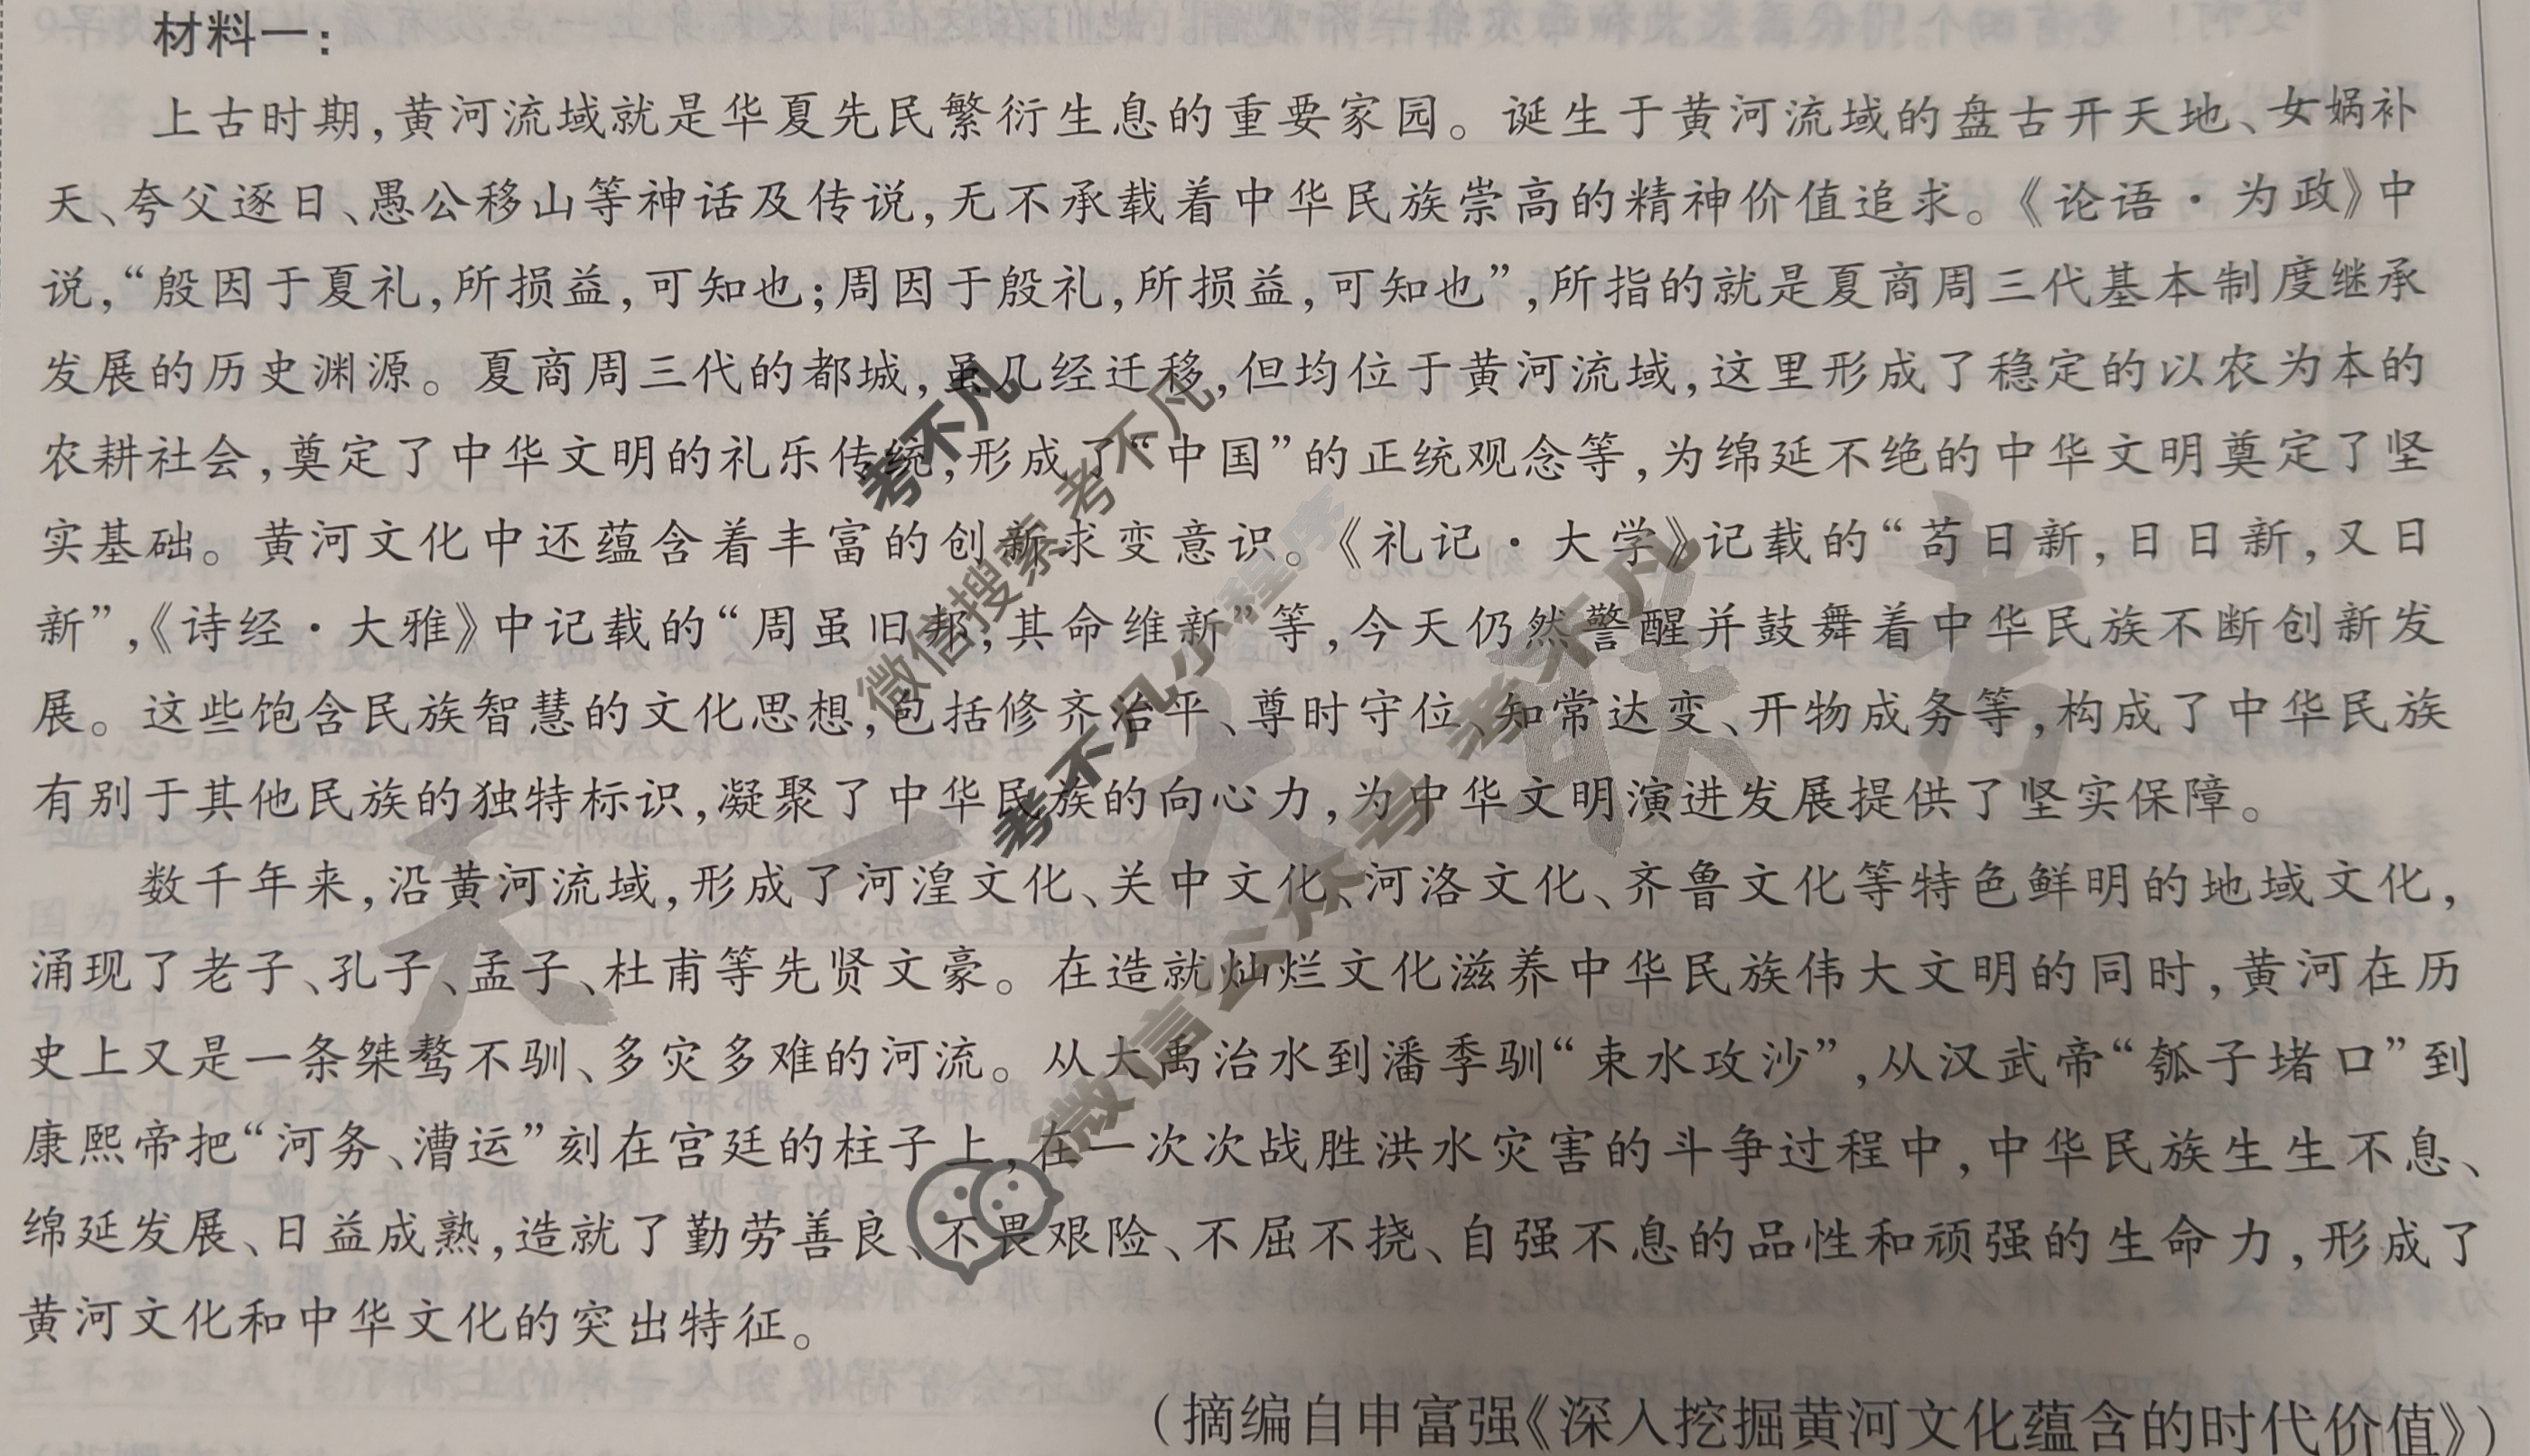 材料一:
上古时期,黄河流域就是华夏先民繁衍生息的重要家园。诞生于黄河流域的盘古开天地、女娲补
天、夸父逐日、愚公移山等神话及传说,无不承载着中华民族崇高的精神价值追求。《论语·为政》中
说,“殷因于夏礼,所损益,可知也;周因于殷礼,所损益,可知也”,所指的就是夏商周三代基本制度继承
发展的历史渊源。夏商周三代的都城,虽几经迁移,但均位于黄河流域,这里形成了稳定的以农为本的
农耕社会,奠定了中华文明的礼乐传统,形成了“中国”的正统观念等,为绵延不绝的中华文明奠定了坚
实基础。黄河文化中还蕴含着丰富的创新求变意识。《礼记·大学》记载的“苟日新,日日新,又日
新”,《诗经·大雅》中记载的“周虽旧邦,其命维新”等,今天仍然警醒并鼓舞着中华民族不断创新发
展。这些饱含民族智慧的文化思想,包括修齐治平、尊时守位、知常达变、开物成务等,构成了中华民族
有别于其他民族的独特标识,凝聚了中华民族的向心力,为中华文明演进发展提供了坚实保障。
数千年来,沿黄河流域,形成了河湟文化、关中文化、河洛文化、齐鲁文化等特色鲜明的地域文化,
涌现了老子、孔子、孟子、杜甫等先贤文豪。在造就灿烂文化滋养中华民族伟大文明的同时,黄河在历
史上又是一条桀骜不驯、多灾多难的河流。从大禹治水到潘季驯“束水攻沙”,从汉武帝“瓠子堵口”到
康熙帝把“河务、漕运”刻在宫廷的柱子上,在一次次战胜洪水灾害的斗争过程中,中华民族生生不息、
绵延发展、日益成熟,造就了勤劳善良、不畏艰险、不屈不挠、自强不息的品性和顽强的生命力,形成了
黄河文化和中华文化的突出特征。
(摘编自申富强《深入挖掘黄河文化蕴含的时代价值》)
考不凡
微信搜索 考不凡
考不凡小程序
微信公众号 考不凡
天一大联考